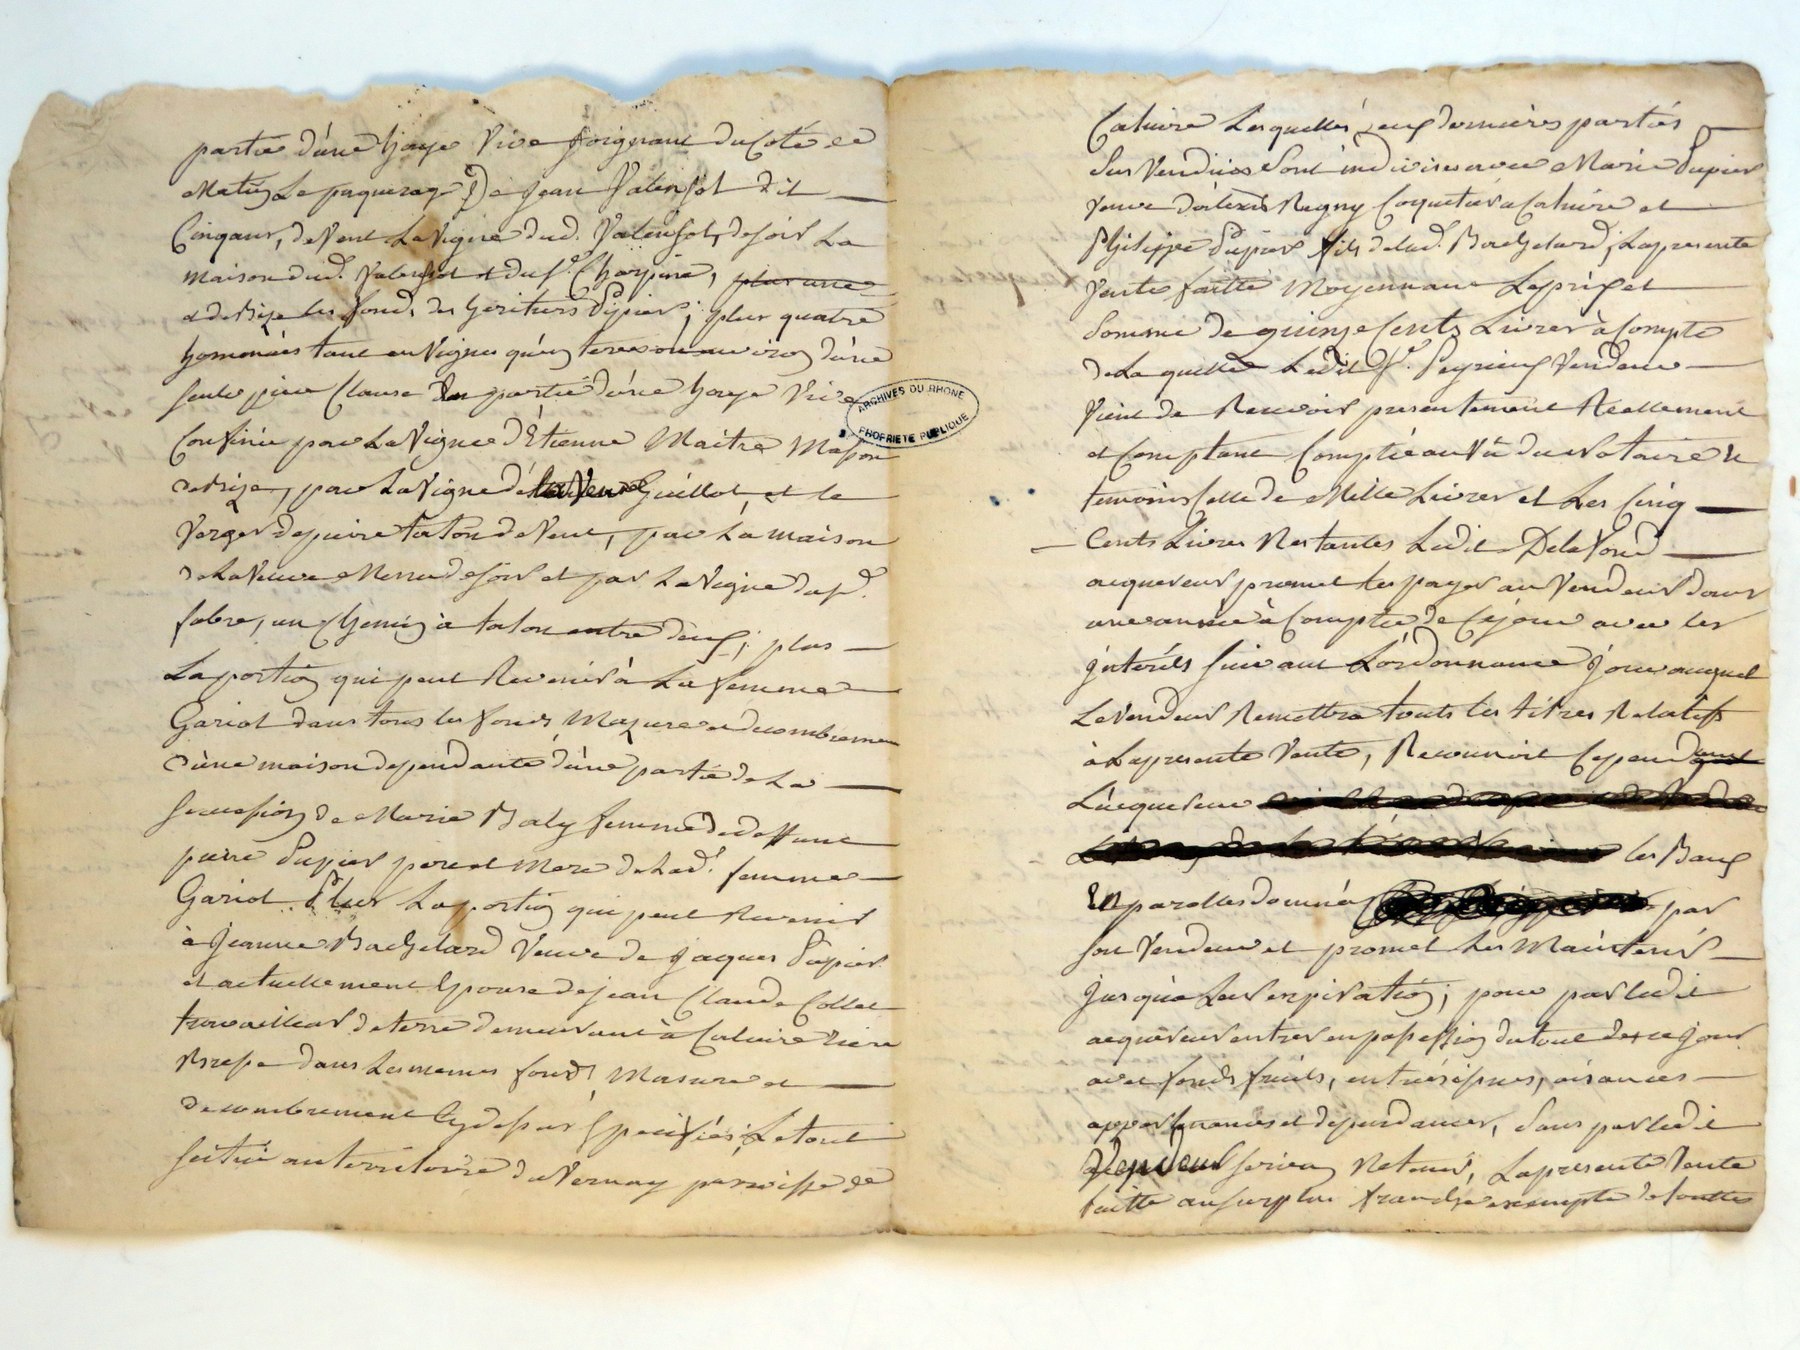 partie d'une haye vive joignant du coté de
Matin le paquerage De jean Valensot dit
Cingaur, de vent La Vigne dud. Valensot, de soir La
maison dud. Valensot et du Sr. Charpine, plus une
et de Bize les fond, des heritiers Pupier; plus quatre
hommées tant en Vignes qu'en terre ou environ d'une
seule piece Clause en partie d'une haye vive
Confinée par La Vigne d'Étienne Maitre Maçon
de Bize, par La Vigne de la Veuve Guillot et le
Verger de pierre taton de Vent, par La maison
de La Veuve de soir et par La Vigne du Sr.
fabre, un Chemin à talon entre deux; plus
La portion qui peut Revenir à La femme
Gariot dans tous les fonds Mazure et decombremens
d'une maison dependante d'une partie de La
succession de Marie Baly femme de deffunt
pierre Pupier pere et Mere de Lad. femme
Gariot Plus La portion qui peut Revenir
à Jeanne Bachelard Veuve de jaques Pupier
et actuellement Epouse de jean Claude Collet
travailleur de terre demeurant à Caluire
Bresse dans Les memes fonds Masure et
decombrement Cy dessus Specifiés; Le tout
scitué au territoire du Vernay paroisse de
Caluire Lesquelles deux dernières parties
Sus Vendües Sont indivises avec Marie Pupier
Veuve d'alexis Regny Coquetier à Caluire et
Philippe Pupier fils de lad. Bachelard, La presente
Vente faitte Moyennant Le prix et
Somme de quinze Cents Livres à Compte
de La quelle Ledit Sr. Peyrieux Vendeur
Vient de Recevoir presentement Reellement
et Comptant Comptée au Vû du Notaire et
temoins Celle de Mille Livres et Les Cinq
Cents Livres Restantes Ledit Delafond
acquereur promet les payer au Vendeur dans
une année à Compter de Ce jour avec les
jnterêts suivant L'ordonnance jour auquel
Le Vendeur Remettra touts les titres Relatifs
à La presente Vente, Reconnoit Cependant
L'acquereur
les Baux
En parolles donnés par
son Vendeur et promet Les Maintenir
jusqu'à Leur expiration; pour par ledit
acquereur entrer en possession du tout de ce jour
avec fonds fruits, entrées issues, aisances
appartenances et dependances, Sans par ledit
Vendeur se rien Retenir, La presente Vente
faitte au surplus franche exempte de touttes
ARCHIVES DU RHONE
PROPRIETE PUBLIQUE